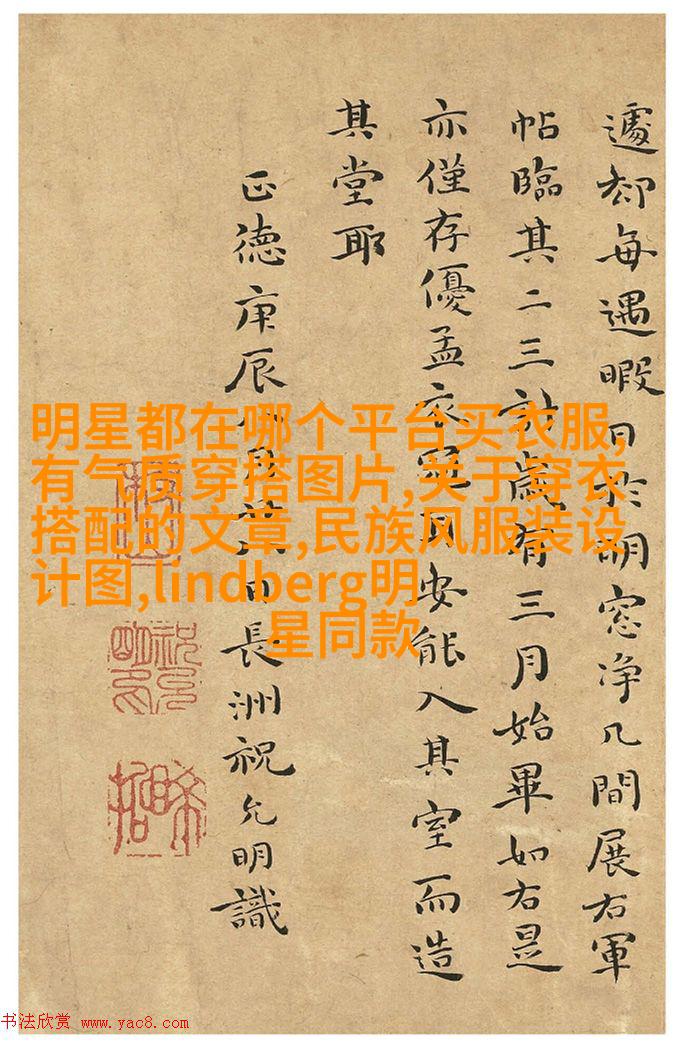 遽却每遇暇日於明窓净几間展右軍
帖臨其二三計歲有三月始畢如右是
亦僅存優孟衣冠耳安能入其室而造
其堂耶
正德庚辰月日長洲祝允明識
明星都在哪个平台买衣服,
有气质穿搭图片,关于穿衣
搭配的文章,民族风服装设
计图,lindberg明
星同款
书法欣赏 www.yac8.com